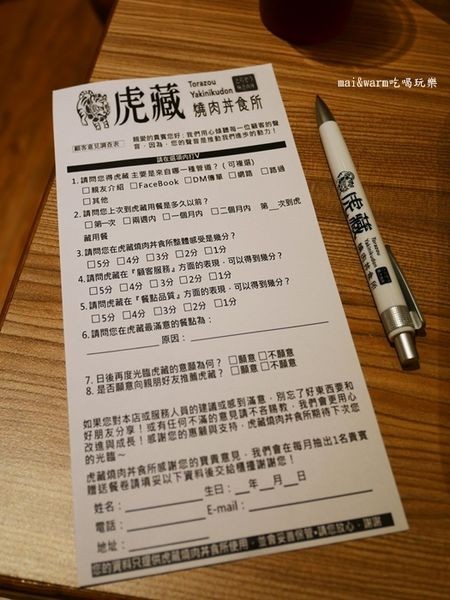 mai&warm吃喝玩樂
虎藏
Torazou
Yakinikudon
燒肉丼食所
顧客意見調查表
親愛的貴賓您好：我們用心傾聽每一位顧客的聲
音，因為，您的聲音是推動我們進步的動力！
請在這項內打V
1.請問您得虎藏 主要是來自哪一種管道？（可複選）
□親友介紹 □FaceBook □DM傳單 □網路 □路過
□其他
2.請問您上次到虎藏用餐是多久以前？
□第一次 □兩週內 □一個月內 □二個月內 第__次到虎
藏用餐
3.請問您在虎藏燒肉丼食所整體感受是幾分？
□5分 □4分 □3分 □2分 □1分
4.請問虎藏在『顧客服務』方面的表現，可以得到幾分？
□5分 □4分 □3分 □2分 □1分
5.請問虎藏在『餐點品質』方面的表現，可以得到幾分？
□5分 □4分 □3分 □2分 □1分
6.請問您在虎藏最滿意的餐點為：
原因：
7.日後再度光臨虎藏的意願為何？□願意□不願意
8.是否願意向親朋好友推薦虎藏？□願意□不願意
如果您對本店或服務人員的建議或感到滿意，別忘了好東西要和
好朋友分享！或有任何不滿的意見請不吝賜教，我們會更用心
改進與成長！感謝您的惠顧與支持，虎藏燒肉丼食所期待下次您
的光臨～
虎藏燒肉丼食所感謝您的寶貴意見，我們會在每月抽出1名貴賓
贈送餐卷請填妥以下資料後交給櫃擡謝謝您！
姓名： 生日：__年__月__日
電話： E-mail：
地址：
您的資料只提供虎藏燒肉丼食所使用，並會妥善保管，請您放心，謝謝！
虎藏
Torazou
Yakinikudon
燒肉丼食所